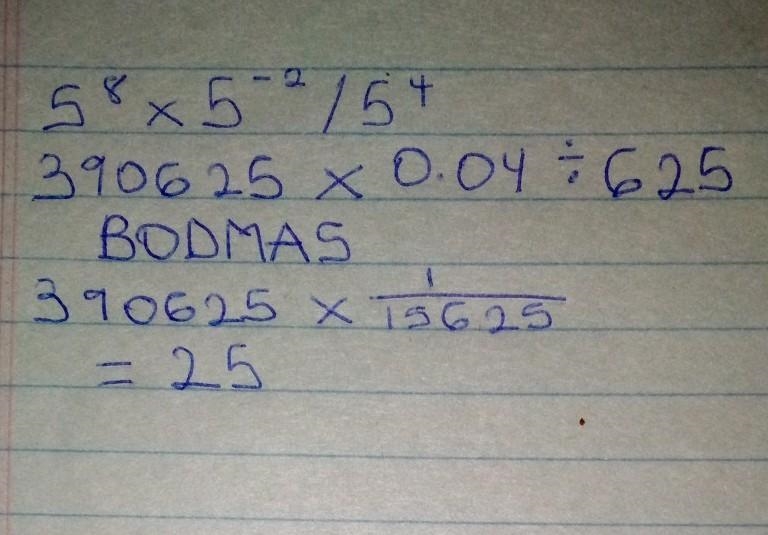 5⁸ × 5⁻² / 5⁴
390625 × 0.04 ÷ 625
BODMAS
390625 × 1/15625
= 25